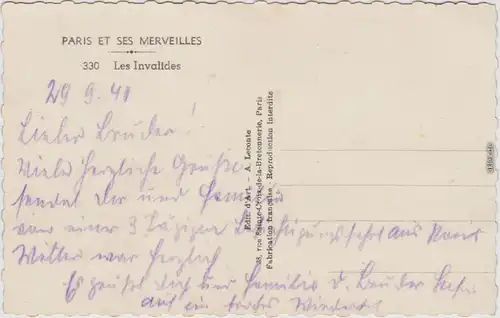 PARIS ET SES MERVEILLES
330 Les Invalides
29 9. 41
Lieber Bruder!
Viele herzliche Grüße
sendet Dir und
von einer 3 tägigen Besichtigungsfahrt aus Paris
Wetter war herzlich
Es grüßt dich und Familie d. Bruder
auf ein Wiedersehen
Edit. d'Art - A. Leconte
38, rue Sainte-Croix-de-la-Bretonnerie, Paris
Fabrication française - Reproduction interdite